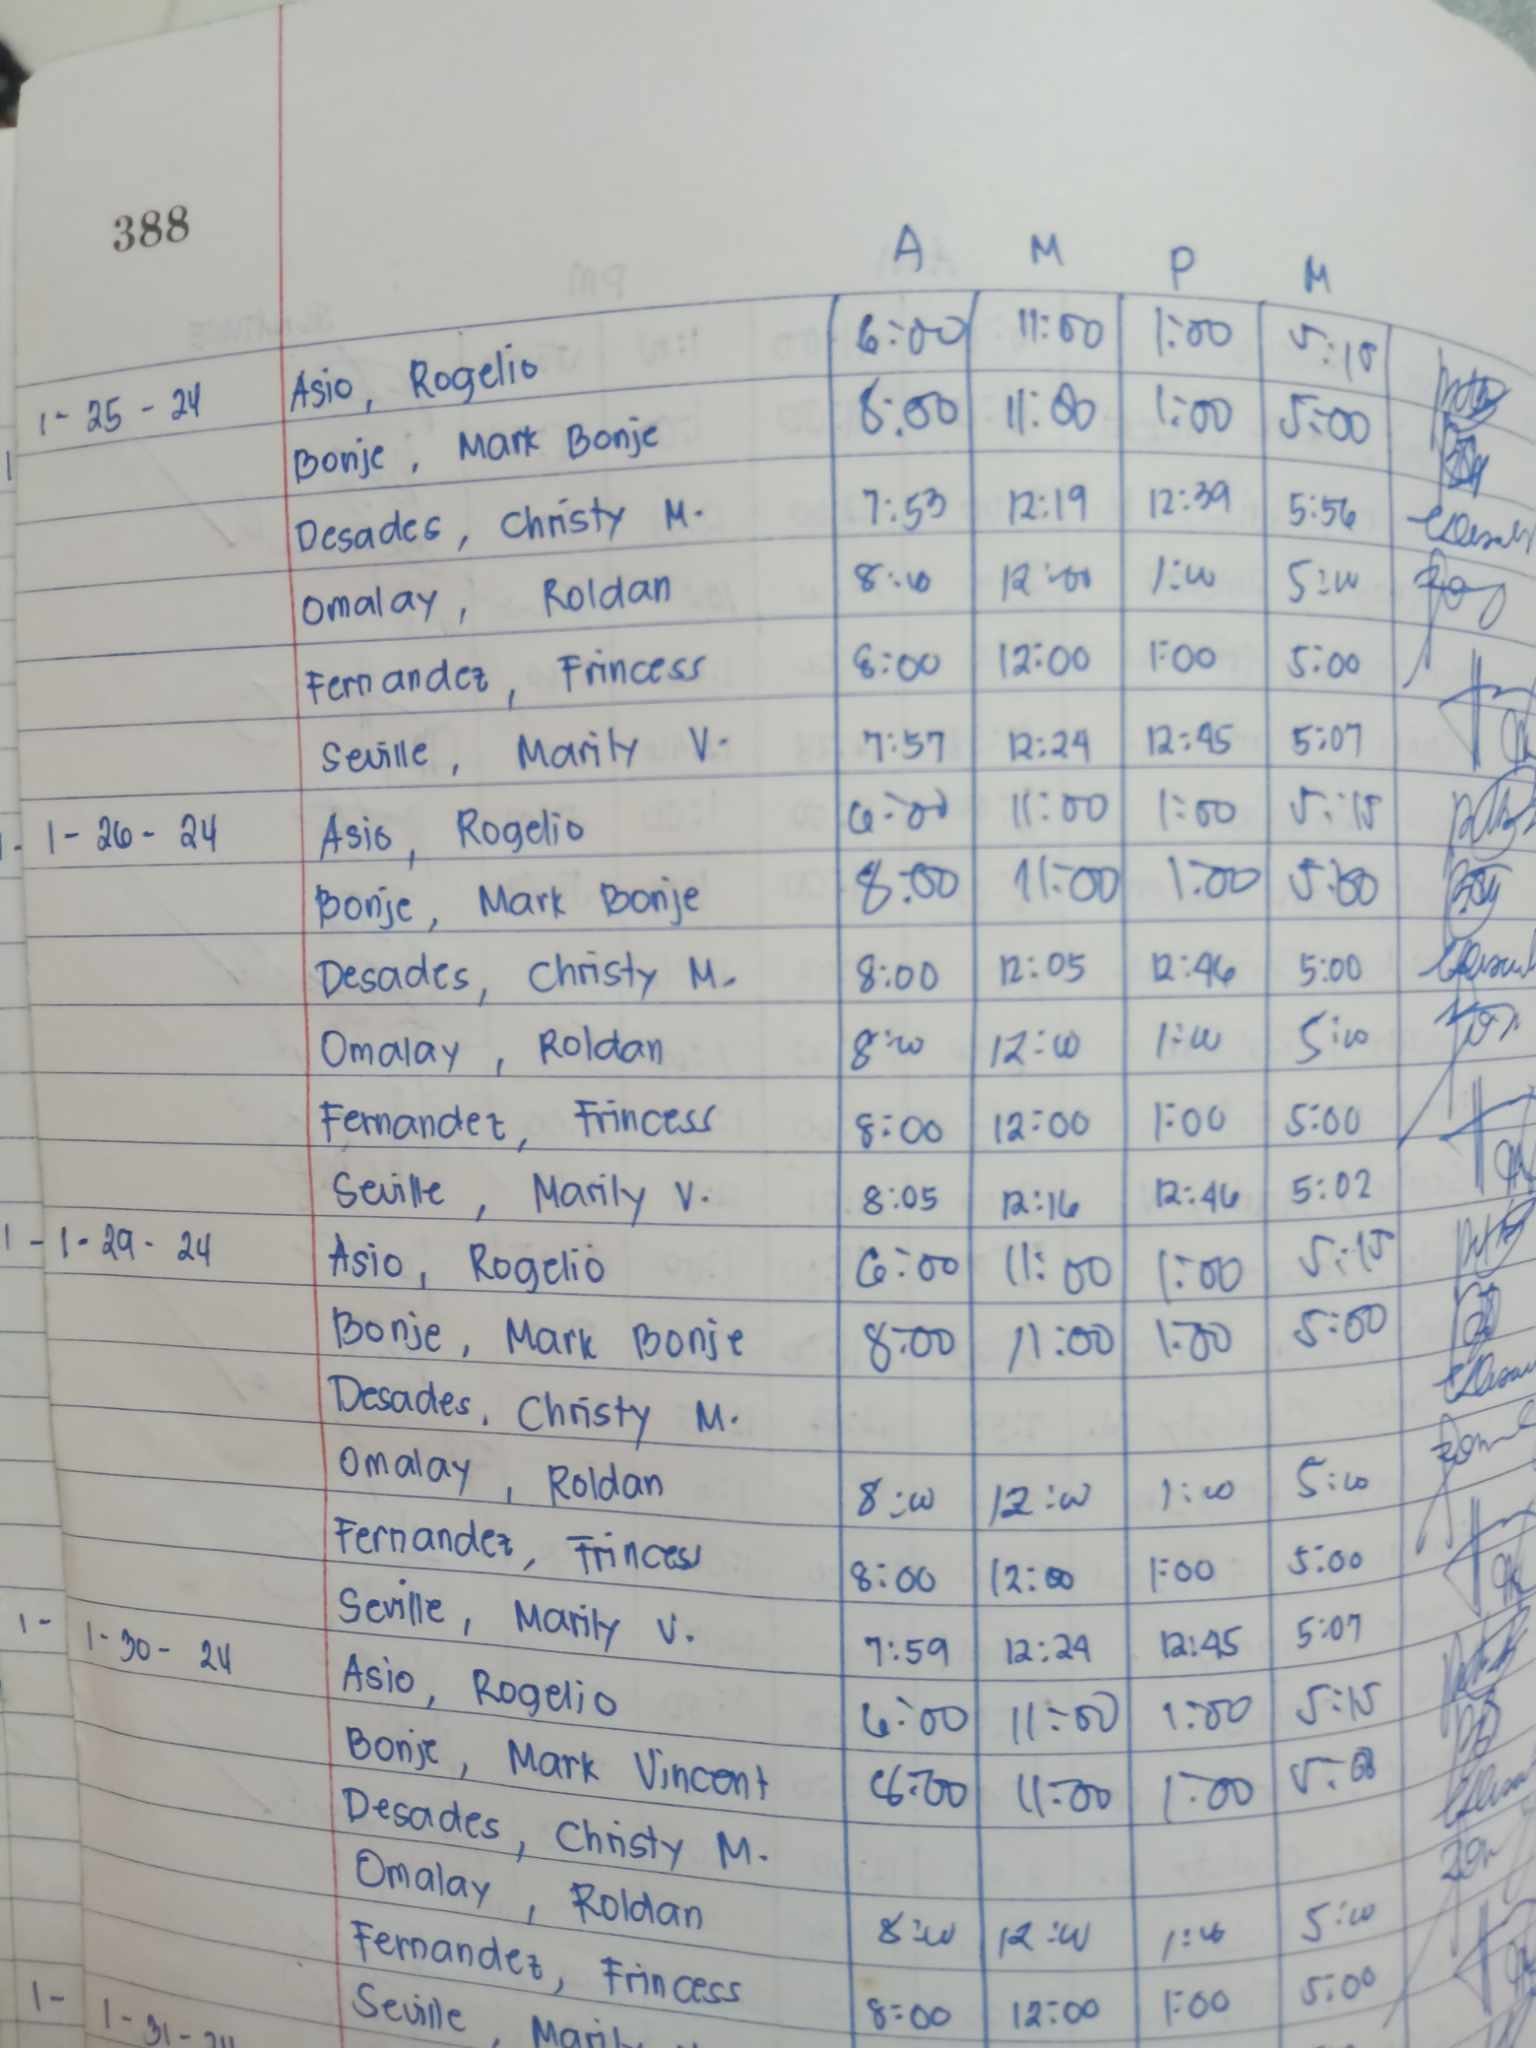 388
A M P M
1-25-24 Asio, Rogelio 6:00 11:00 1:00 5:15
Bonje, Mark Bonje 8:00 11:00 1:00 5:00
Desades, Christy M. 7:53 12:19 12:39 5:56
Omalay, Roldan 8:00 12:00 1:00 5:00
Fernandez, Frincess 8:00 12:00 1:00 5:00
Seville, Marily V. 7:57 12:24 12:45 5:07
1-26-24 Asio, Rogelio 6:00 11:00 1:00 5:15
Bonje, Mark Bonje 8:00 11:00 1:00 5:00
Desades, Christy M. 8:00 12:05 12:46 5:00
Omalay, Roldan 8:00 12:00 1:00 5:00
Fernandez, Frincess 8:00 12:00 1:00 5:00
Seville, Marily V. 8:05 12:16 12:46 5:02
1-29-24 Asio, Rogelio 6:00 11:00 1:00 5:15
Bonje, Mark Bonje 8:00 11:00 1:00 5:00
Desades, Christy M.
Omalay, Roldan 8:00 12:00 1:00 5:00
Fernandez, Frincess 8:00 12:00 1:00 5:00
Seville, Marily V. 7:59 12:24 12:45 5:07
1-30-24 Asio, Rogelio 6:00 11:00 1:00 5:15
Bonje, Mark Vincent 8:00 11:00 1:00
Desades, Christy M.
Omalay, Roldan 8:00 12:00 1:00 5:00
Fernandez, Frincess 8:00 12:00 1:00 5:00
Seville, Marily
1-31-24